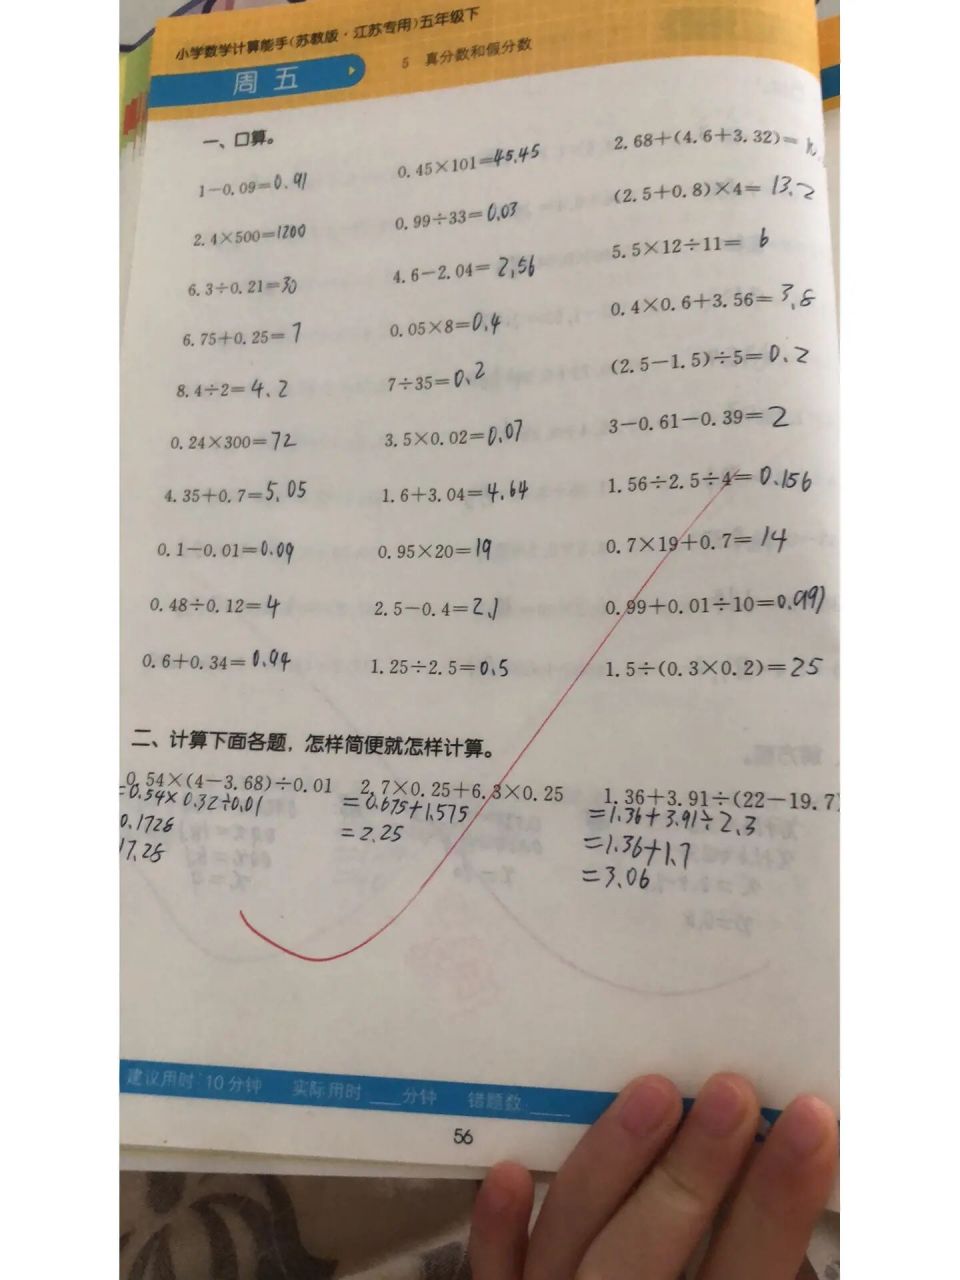 小学数学计算能手(苏教版·江苏专用)五年级下
周五
5 真分数和假分数
一、口算。
1-0.09=0.91
0.45×101=45.45
2.68+(4.6+3.32)=
2.4×500=1200
0.99÷33=0.03
(2.5+0.8)×4=13.2
6.3÷0.21=30
4.6-2.04=2.56
5.5×12÷11=6
6.75+0.25=7
0.05×8=0.4
0.4×0.6+3.56=3.8
8.4÷2=4.2
7÷35=0.2
(2.5-1.5)÷5=0.2
0.24×300=72
3.5×0.02=0.07
3-0.61-0.39=2
4.35+0.7=5.05
1.6+3.04=4.64
1.56÷2.5÷4=0.156
0.1-0.01=0.09
0.95×20=19
0.7×19+0.7=14
0.48÷0.12=4
2.5-0.4=2.1
0.99+0.01÷10=0.991
0.6+0.34=0.94
1.25÷2.5=0.5
1.5÷(0.3×0.2)=25
二、计算下面各题，怎样简便就怎样计算。
0.54×(4-3.68)÷0.01
=0.54×0.32÷0.01
0.1728
17.28
2.7×0.25+6.3×0.25
=0.675+1.575
=2.25
1.36+3.91÷(22-19.7
=1.36+3.91÷2.3
=1.36+1.7
=3.06
建议用时:10分钟 实际用时____分钟 错题数____
56